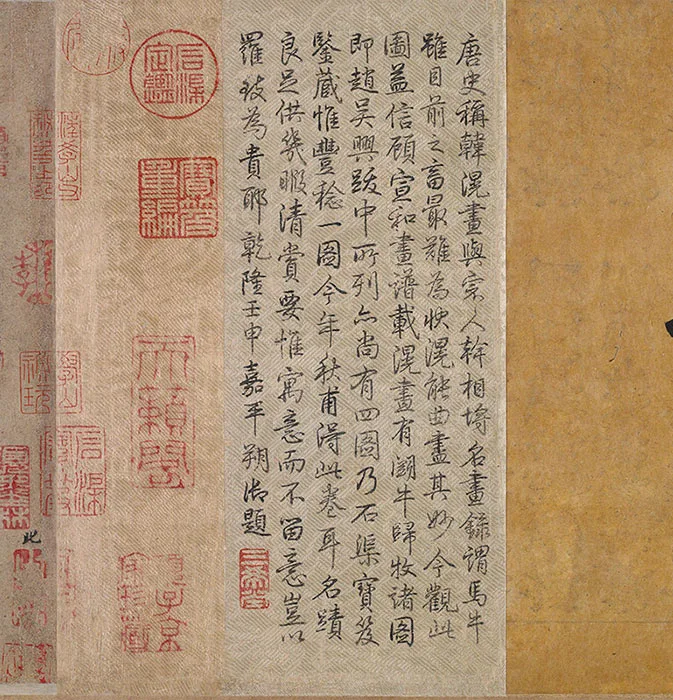 唐史稱韓滉畫與宗人幹相埒名畫錄謂馬牛
雖目前之畜最難為狀滉能曲盡其妙今觀此
圖益信顧宣和畫譜載滉畫有鬭牛歸牧諸圖
即趙吳興跋中所列亦尚有四圖乃石渠寶笈
鑒藏惟豐稔一圖今年秋甫得此卷耳名蹟
良足供幾暇清賞要惟寓意而不留意豈以
羅致為貴耶乾隆壬申嘉平朔御題
三希堂
石渠定鑑
寶笈重編
天籟閣
項子京家珍藏
此